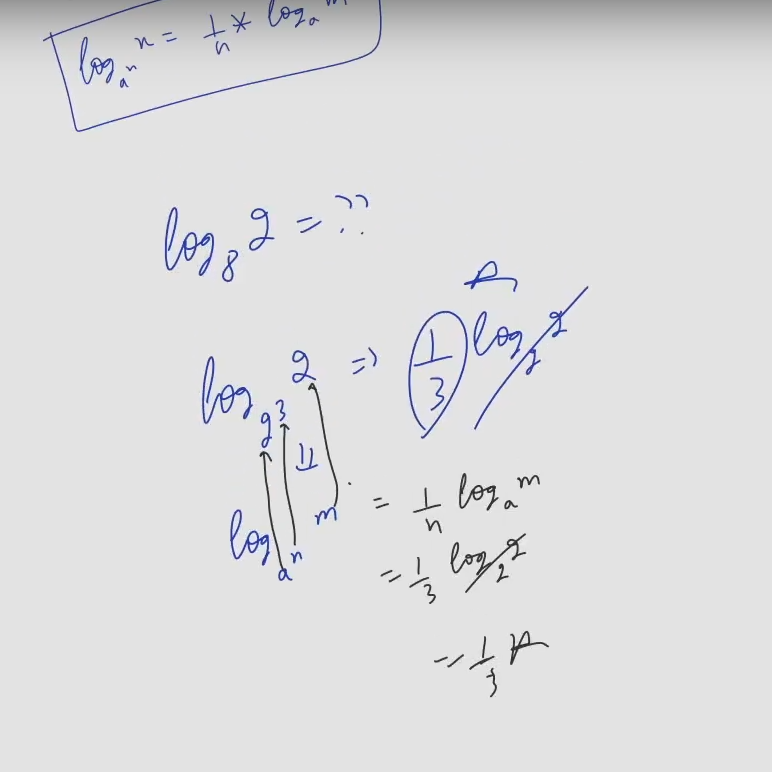 log_{a^n} n = 1/n * log_a m
log_8 2 = ??
log_{2^3} 2 => 1/3 log_2 2
log_{a^n} m = 1/n log_a m
= 1/3 log_2 2
= 1/3